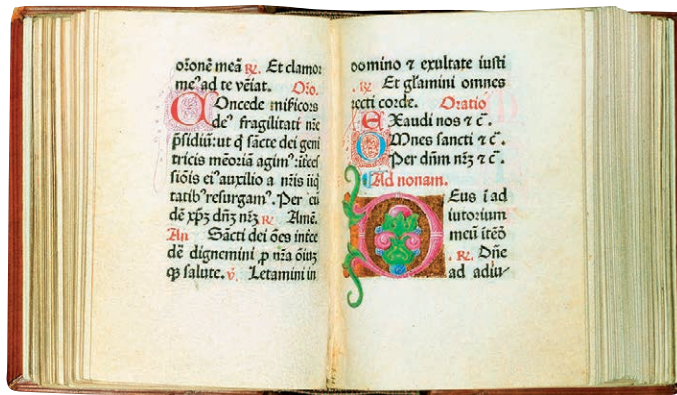 orōnē meā ꝶ. Et clamor
meꝰ ad te vēiat. Oro.
COncede miẜicors
deꝰ fragilitati nr̄e
p̄sidiū: ut q̄ sācte dei geni
tricis mēoriā agimꝰ: ītercͥes
siōis eiꝰ auxilio a nr̄is iīq
tatibꝰ resurgamꝰ. Per eū
dē xp̄ȝ dn̄ȝ nr̄ȝ ꝶ Amē.
An Sācti dei ōes inteꝛce
dē dignemini ꝓ nr̄a ōiuȝ
ꝙ salute. ꝟ. Letamini in
domino ⁊ exultate iusti
. ꝶ Et gl̄amini omnes
recti corde. Oratio
EXaudi nos ⁊ c̄.
OMnes sancti ⁊ c̄.
Per dn̄m nr̄ȝ ⁊ c̄.
Ad nonam.
DEus ī ad
iutorium
meū ītēō
. ꝶ. Dn̄e
ad adiu